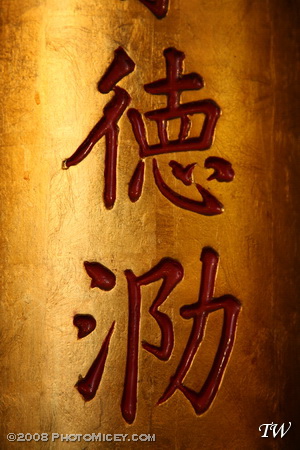 徳
泐
©2008 PhotoMicey.com
TW